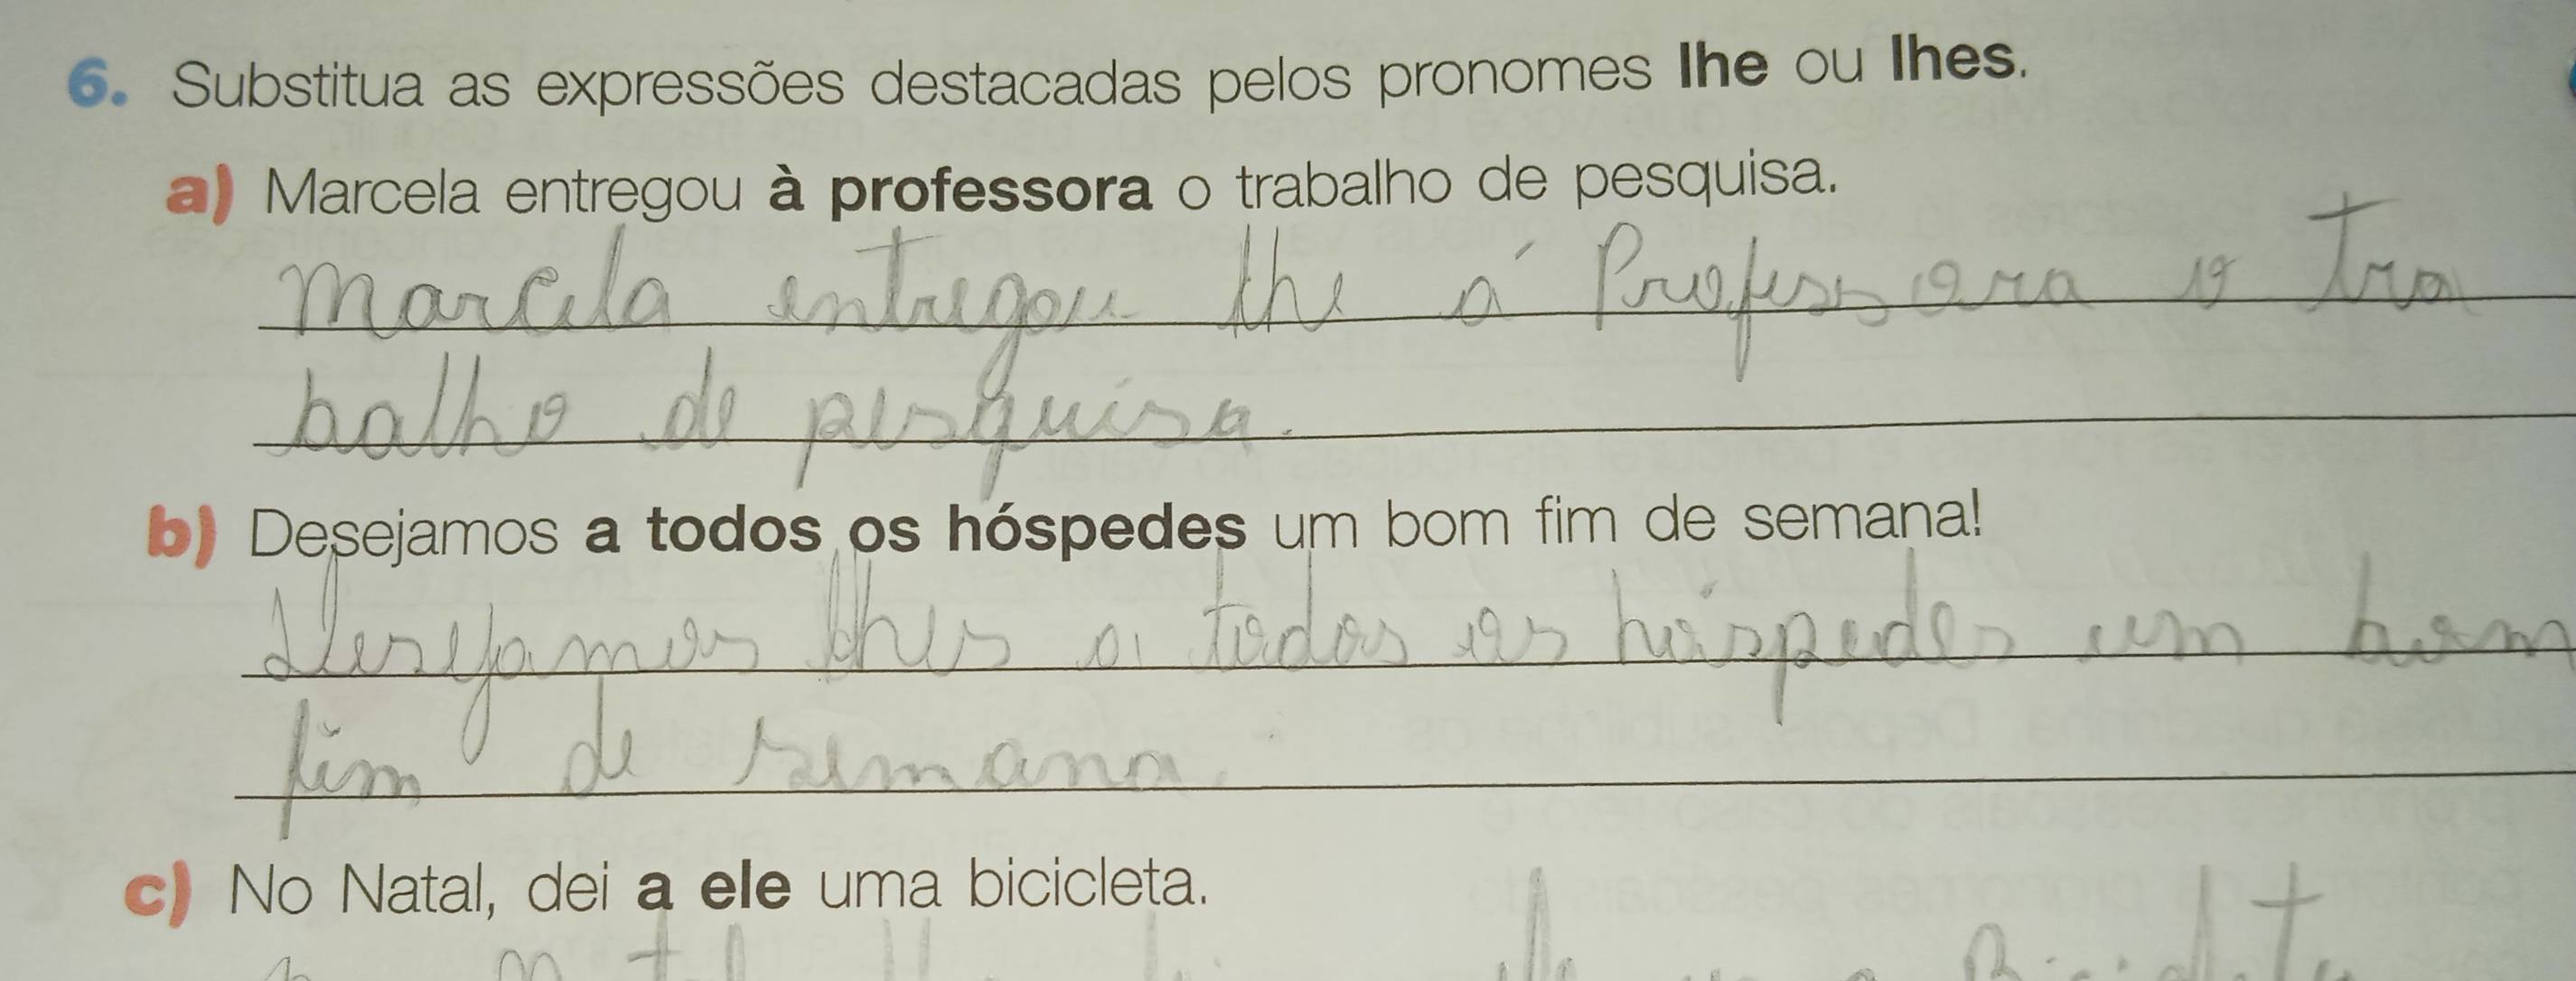 6. Substitua as expressões destacadas pelos pronomes lhe ou lhes.
a) Marcela entregou à professora o trabalho de pesquisa.
Marcela entregou lhe a´ Professora o tra
balho de pesquisa.
b) Desejamos a todos os hóspedes um bom fim de semana!
Desejamos lhes a todos os hóspedes um bom
fim de semana.
c) No Natal, dei a ele uma bicicleta.